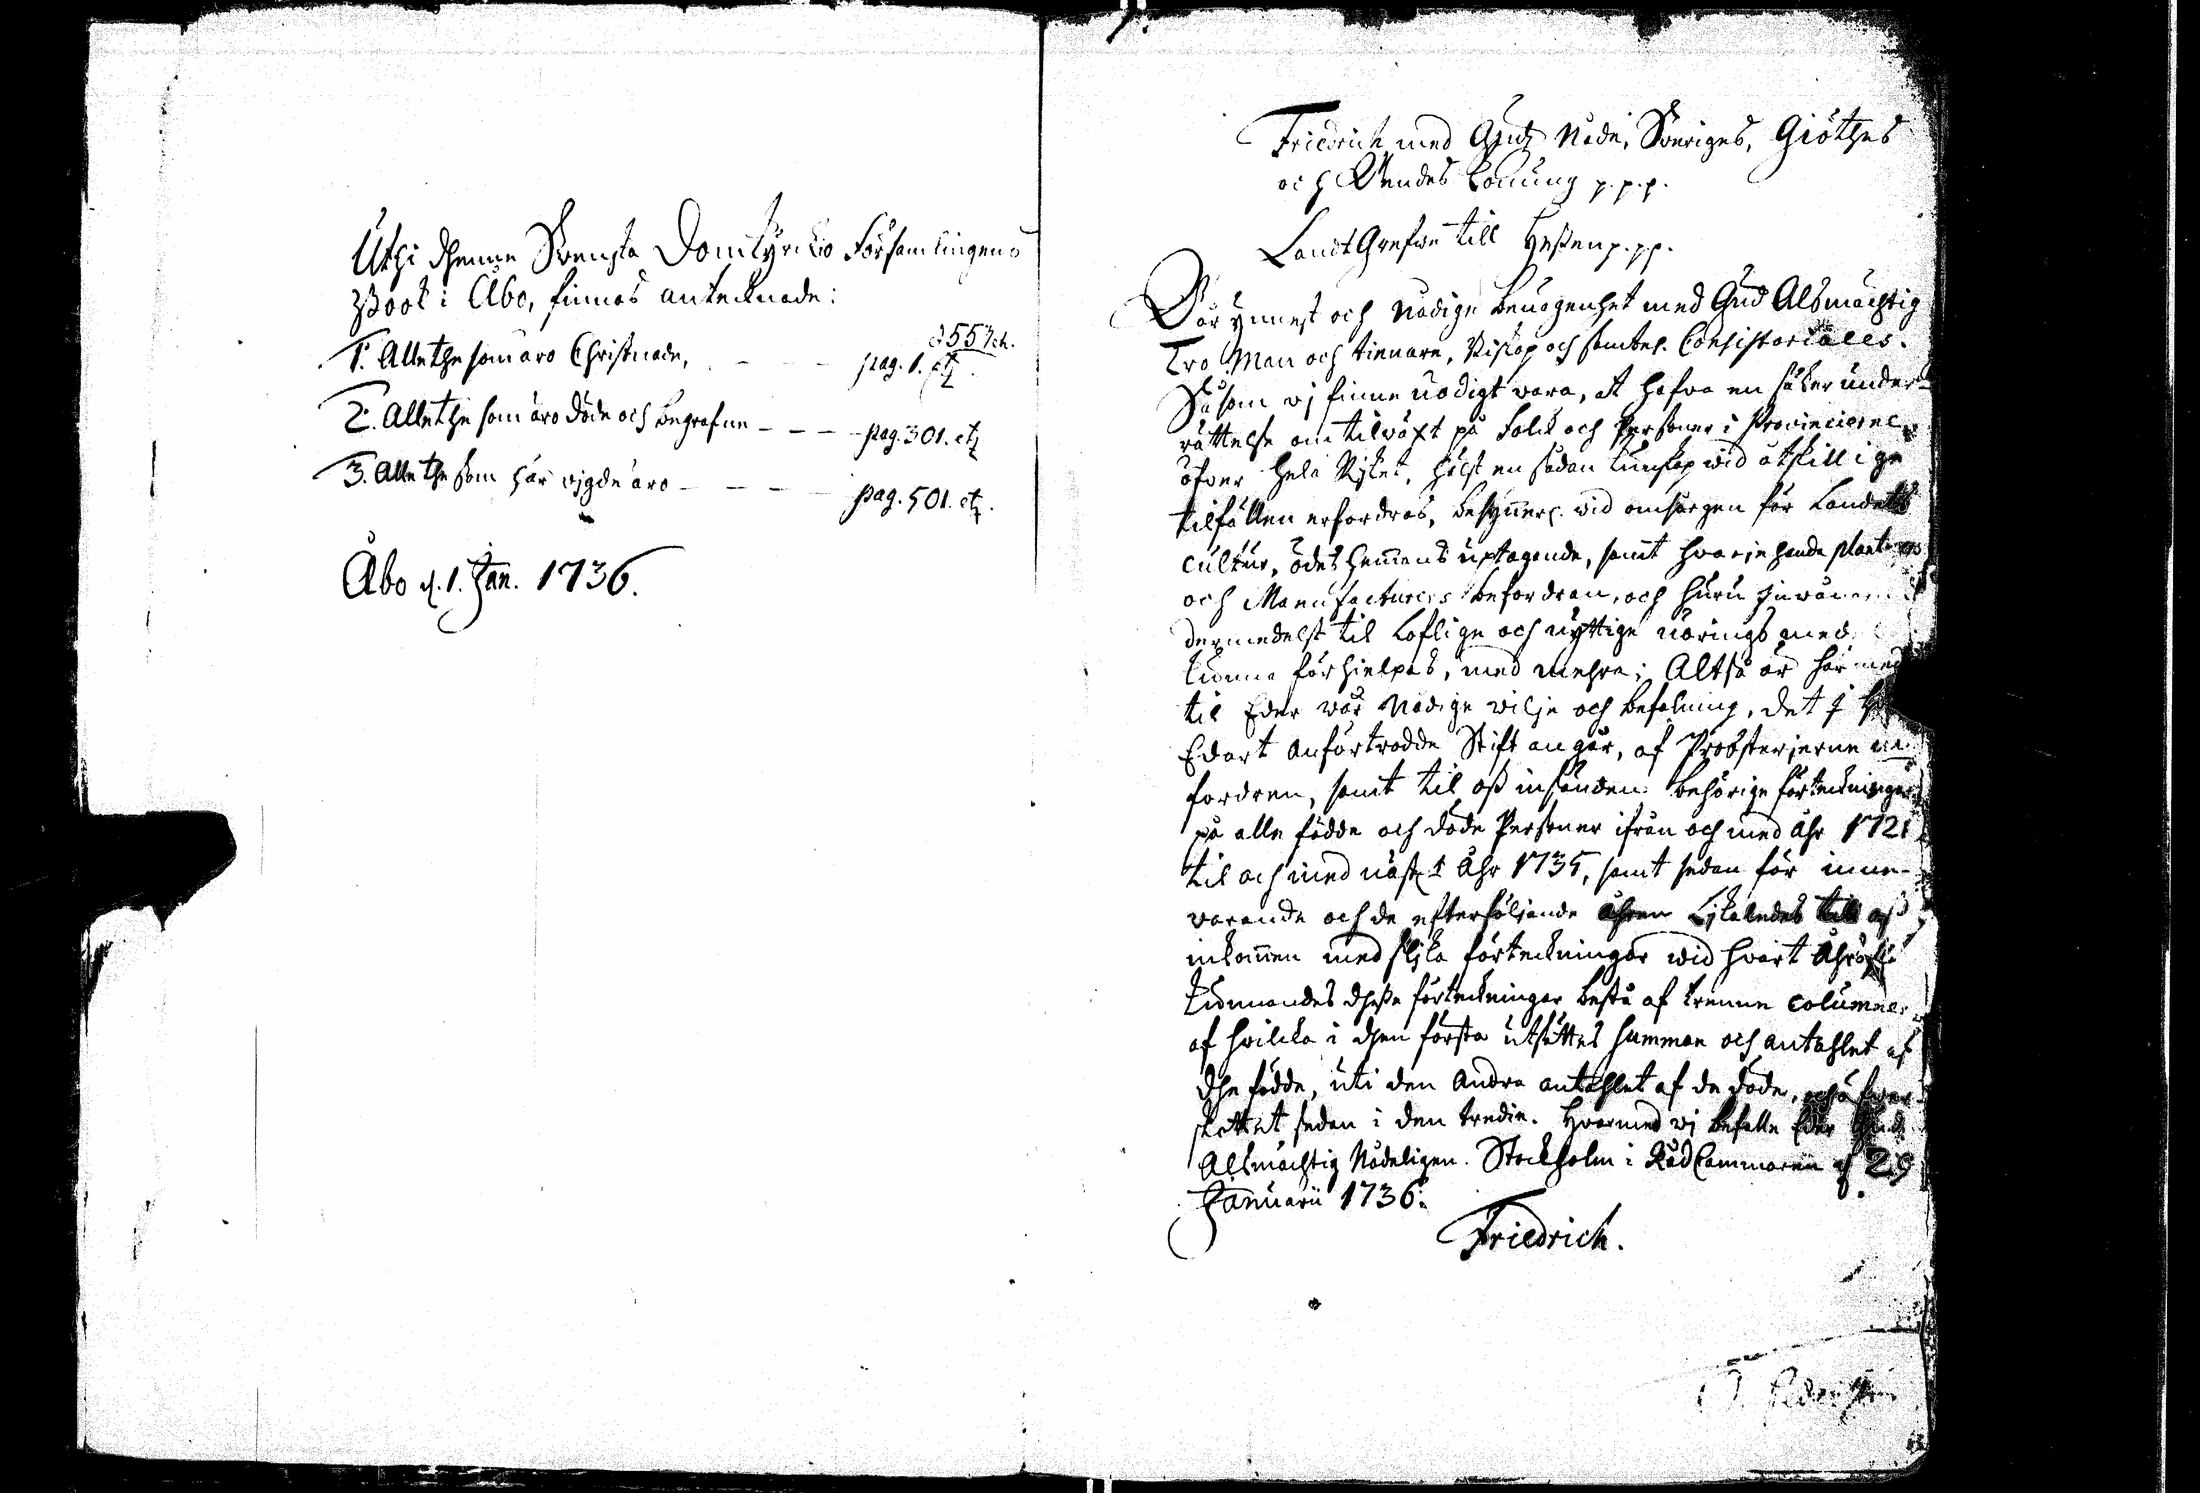 Uthi thenne Svenska Domkyrckio Församlingens
Book i Åbo, finnas antecknade:
1. Alle the som äro Christnade, - - - pag. 1. etz.
2. Alle the som äro döde och begrafne - - - - pag. 301. etz
3. Alle the som här vigde äro - - - - pag. 501. etz.
Åbo d. 1. Jan. 1736.
Friedrich med Gudz Nåde, Sveriges, Giöthes
och Wendes Konung p.p.p.
LandtGrefwe till Hessen p.p.p.
Vår ynnest och Nådige benägenhet med Gud Alsmächtig
Tro Man och tienare, Biskop och samtel. Consistoriales.
Såsom vj finne nödigt vara, at hafva en säker under-
rättelse om tilväxt på Folck och Personer i Provincierne
öfver hela Rijket, hälst en sådan kunskap wid åtskillige
tilfällen erfordras, besynnerl. wid omsorgen för Landets
cultur, ödes hemmans uptagande, samt hvarjehanda
och Manufacturers befordran, och huru
dermedelst til loflige och nyttige närings
kunna förhielpas, med mehra; Altså är härmed
til Eder wår Nådige vilje och befalning, det J
Edart anförtrodde Stift angår, af Probsterierne
fordren, samt til oss insänden behörige förteckningar
på alle födde och döde Personer ifrån och med åhr 1721
til och med näst. 1 Åhr 1735, samt sedan för inne-
varande och de efterföljande åhren lijkaledes till oss
inkommen med slijka förteckningar wid hvart åhrs
kunnandes thesse förteckningar bestå af trenne columner
af hvilcka i then första utsättes summan och antahlet af
the födde, uti den andra antahlet af de döde, och öfver-
skottet sedan i den tredie. Hvarmed vj befalle Eder Gud
Alsmächtig Nådeligen. Stockholm i RådCammaren d. 29
Januarii 1736.
Friedrich.